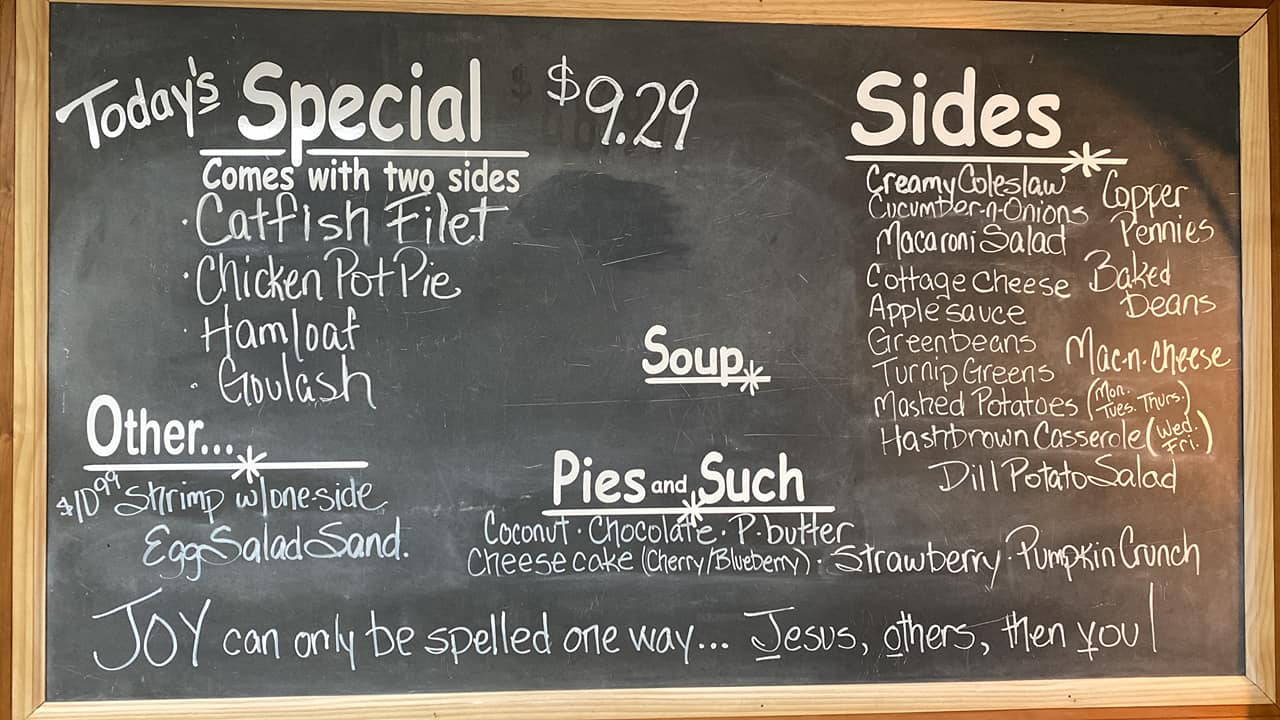 Today's Special $9.29
Comes with two sides
· Catfish Filet
· Chicken Pot Pie
Hamloaf
· Goulash
Other...
$10.99 Shrimp w/one side
Egg Salad Sand.
Soup
Pies and Such
Coconut · Chocolate · P-butter
Cheesecake (Cherry/Blueberry) · Strawberry · Pumpkin Crunch
Sides
Creamy Coleslaw
Cucumber-n-Onions
Macaroni Salad
Cottage Cheese
Applesauce
Greenbeans
Turnip Greens
Mashed Potatoes (Mon. Tues. Thurs.)
Hashbrown Casserole (Wed. Fri.)
Dill Potato Salad
Copper
Pennies
Baked
Beans
Mac-n-Cheese
JOY can only be spelled one way... Jesus, others, then you!